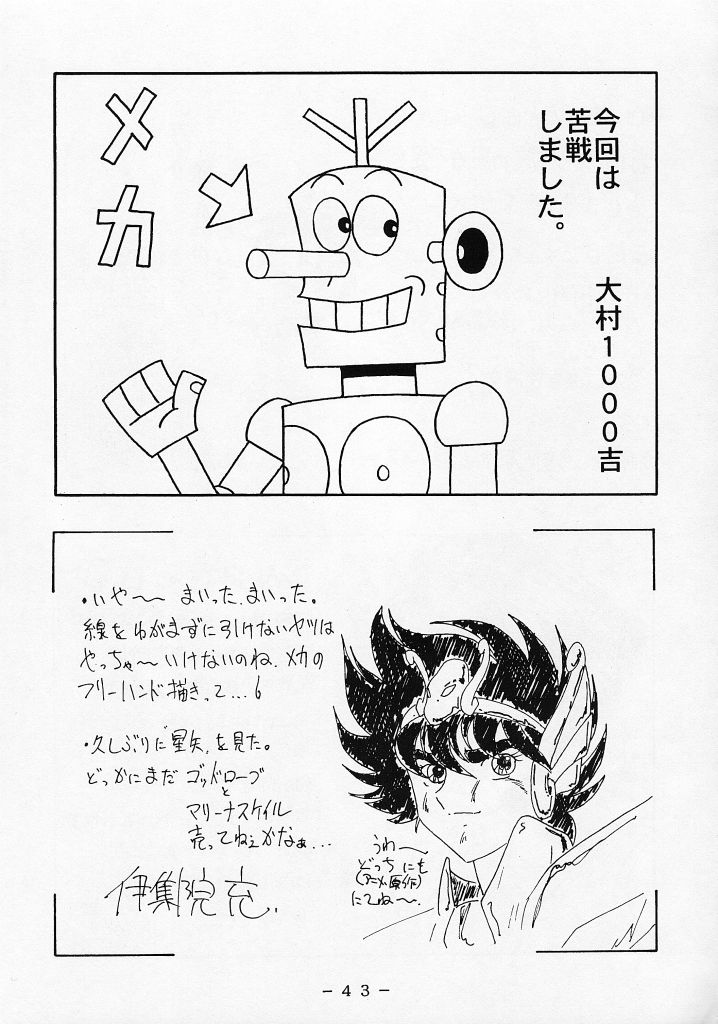 今回は
苦戦
しました。
大村1000吉
メカ
・いや〜〜 まいった、まいった。
線をゆがまずに引けないヤツは
やっちゃ〜いけないのね、メカの
フリーハンド描きって…6
・久しぶりに"星矢"を見た。
どっかにまだ ゴッドローブ
と
マリーナスケイル
売ってねぇかなぁ...
うわ〜
どっちにも
(アニメ・原作)
にてね〜.
伊集院 充.
- 43 -